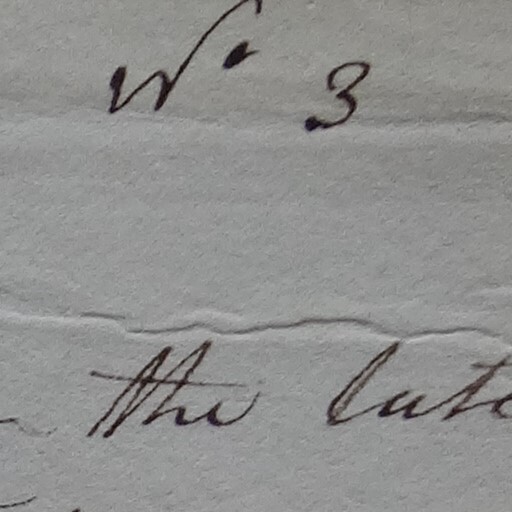 No 3
the late